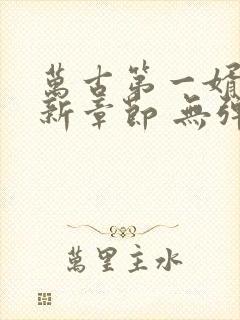 萬古第一婿
新章節 無彈
萬里主水